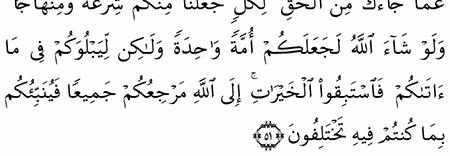 عَمَّا جَآءَكَ مِنَ ٱلْحَقِّ ۚ لِكُلٍّ جَعَلْنَا مِنكُمْ شِرْعَةً وَمِنْهَاجًا ۚ
وَلَوْ شَآءَ ٱللَّهُ لَجَعَلَكُمْ أُمَّةً وَٰحِدَةً وَلَٰكِن لِّيَبْلُوَكُمْ فِى مَآ
ءَاتَىٰكُمْ فَٱسْتَبِقُوا۟ ٱلْخَيْرَٰتِ ۚ إِلَى ٱللَّهِ مَرْجِعُكُمْ جَمِيعًا فَيُنَبِّئُكُم
بِمَا كُنتُمْ فِيهِ تَخْتَلِفُونَ ﴿٥١﴾